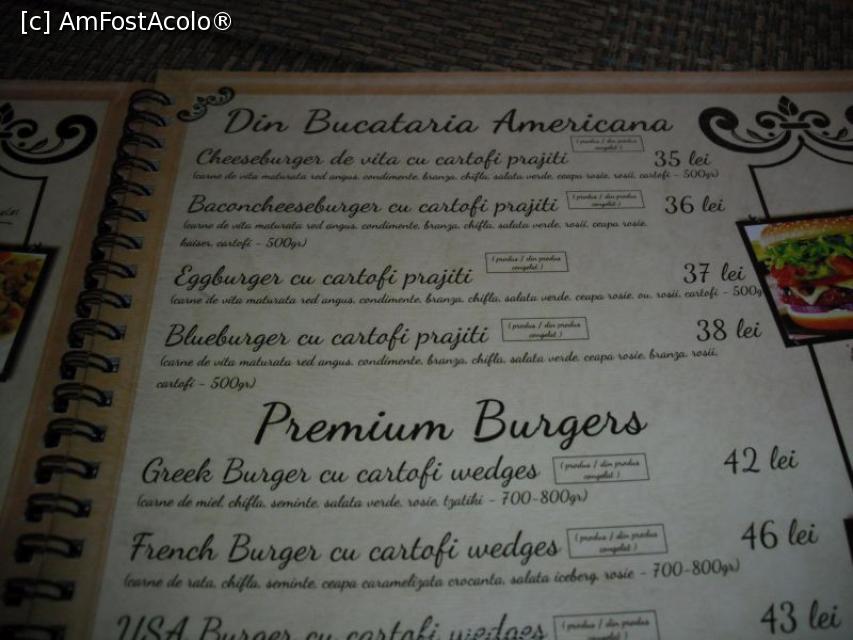 [c] AmFostAcolo®
Din Bucataria Americana
Cheeseburger de vita cu cartofi prajiti (produs / din produs congelat) 35 lei
(carne de vita maturata red angus, condimente, branza, chifla, salata verde, ceapa rosie, rosii, cartofi - 500gr)
Baconcheeseburger cu cartofi prajiti (produs / din produs congelat) 36 lei
(carne de vita maturata red angus, condimente, branza, chifla, salata verde, rosii, ceapa rosie,
kaiser, cartofi - 500gr)
Eggburger cu cartofi prajiti (produs / din produs congelat) 37 lei
(carne de vita maturata red angus, condimente, branza, chifla, salata verde, ceapa rosie, ou, rosii, cartofi - 500g
Blueburger cu cartofi prajiti (produs / din produs congelat) 38 lei
(carne de vita maturata red angus, condimente, branza, chifla, salata verde, ceapa rosie, branza, rosii,
cartofi - 500gr)
Premium Burgers
Greek Burger cu cartofi wedges (produs / din produs congelat) 42 lei
(carne de miel, chifla, seminte, salata verde, rosie, tzatiki - 700-800gr)
French Burger cu cartofi wedges (produs / din produs congelat) 46 lei
(carne de rata, chifla, seminte, ceapa caramelizata crocanta, salata iceberg, rosie - 700-800gr)
USA Burger cu cartofi wedges (produs / din produs congelat) 43 lei